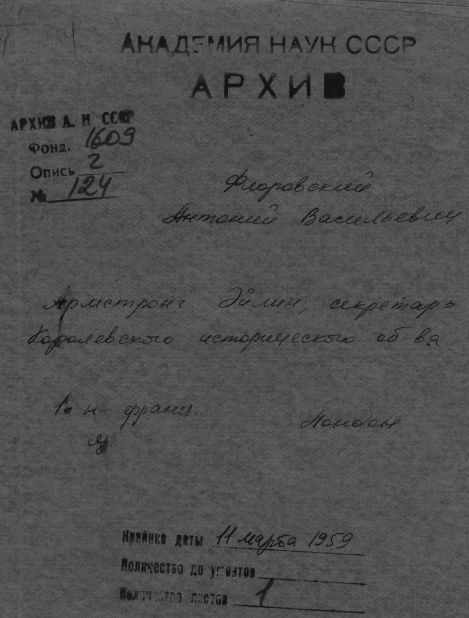 АКАДЕМИЯ НАУК СССР
АРХИВ
АРХИВ А. Н. СССР
Фонд. 1609
Опись 2
№ 124
Флоровский
Антоний Васильевич
Армстронг Эйлин, секретарь
Королевского исторического об-ва
1 п. н франц.
яз
Лондон
Крайние даты 11 марта 1959
Количество документов
Количество листов 1